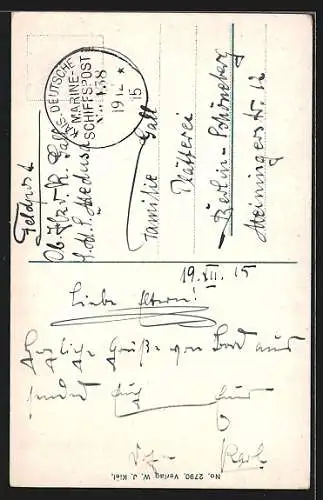 KAIS. DEUTSCHE
MARINE-
SCHIFFSPOST
No 138
19 12
15
Feldpost
S.M.S. Medusa
Familie
Gall
Plätterei
Berlin-Schöneberg
Meiningerstr. 12
19. XII. 15
Liebe Eltern!
Herzliche Grüße von Bord aus
sendet Euch Euer
Sohn Karl
No. 2790. Verlag W. J. Kiel.